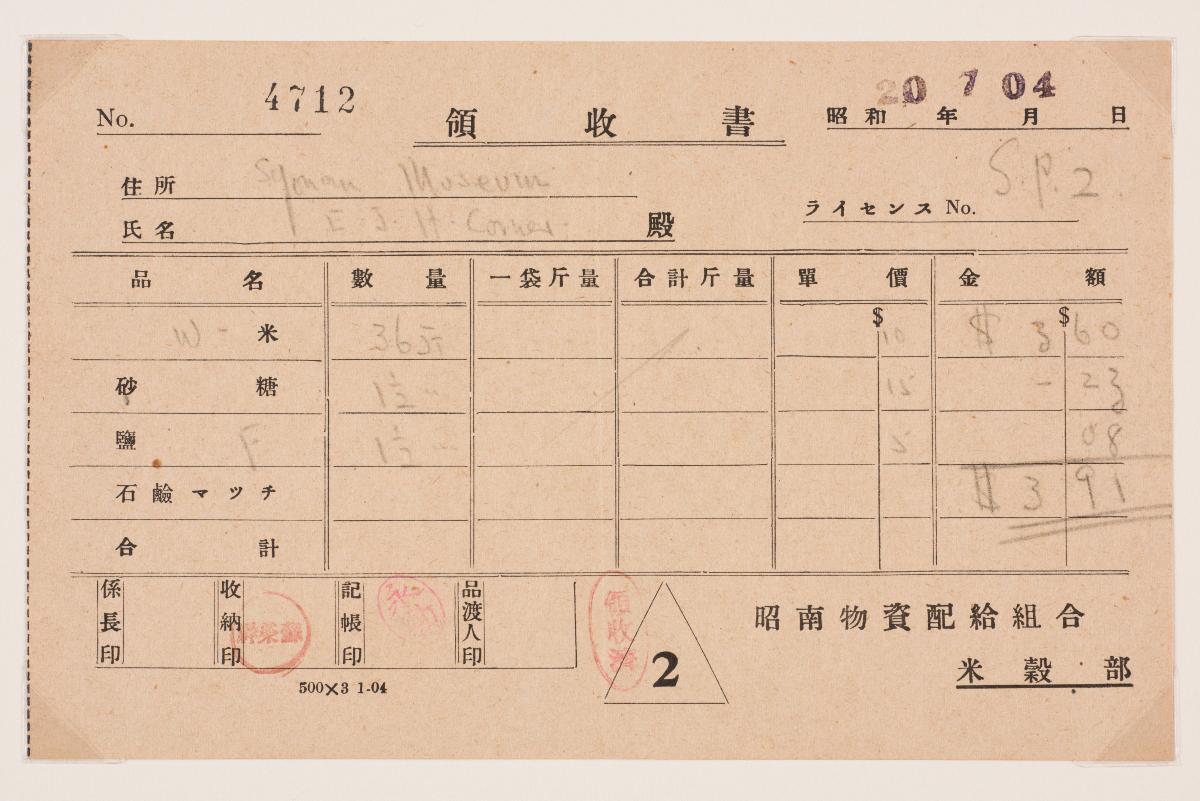 No. 4712
領收書
20 7 04
昭和 年 月 日
住所 Syonan Museum
氏名 E. J. H. Corner 殿
ライセンス No. S.P. 2
品名 數量 一袋斤量 合計斤量 單價 金額
W - 米 36斤 $ 10 $ 3 60
砂糖 1½ 15 - 23
鹽 F 1½ 5 08
石鹼マツチ $ 3 91
合計
係長印 收納印 記帳印 品渡人印
領收濟
2
昭南物資配給組合
米穀部
500×3 1-04